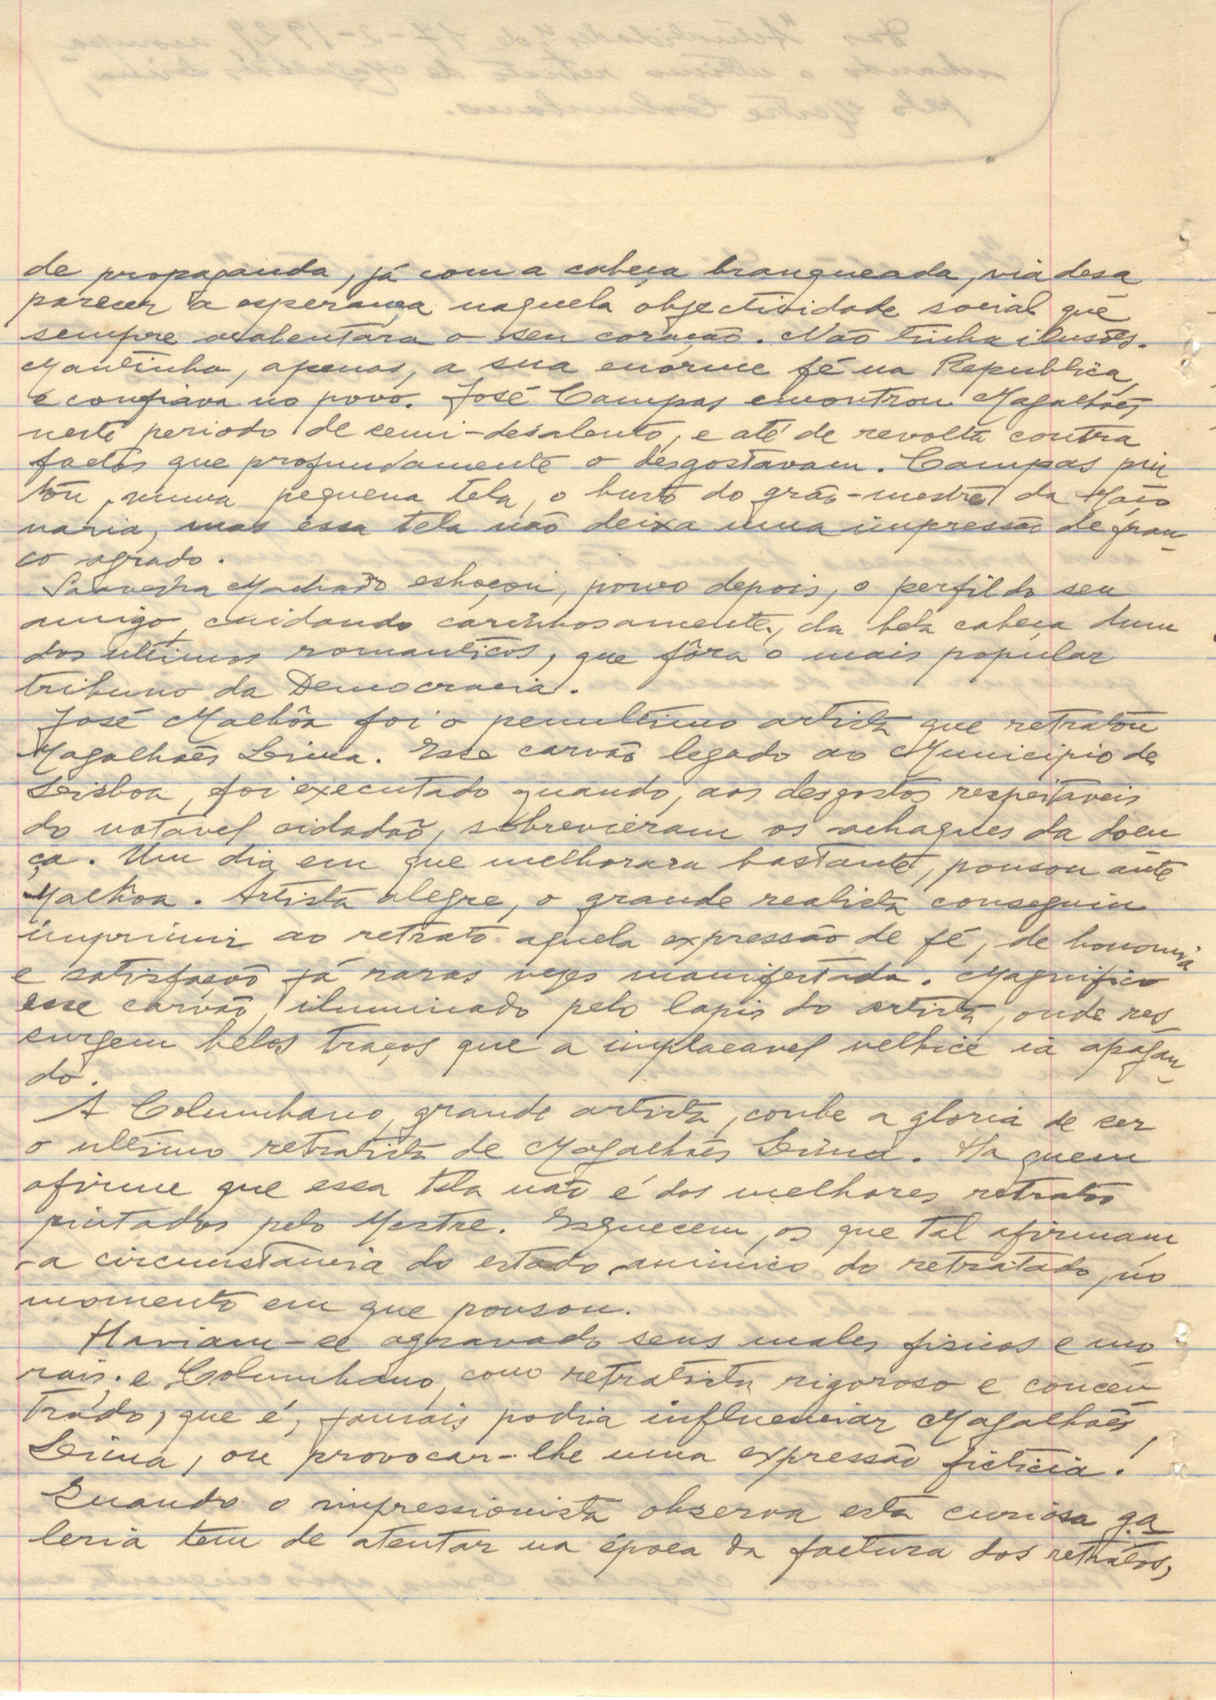 de propaganda, já com a cabeça branqueada, via desa
parecer a esperança naquela objectividade social que
sempre acalentara o seu coração. Não tinha ilusões.
Mantinha, apenas, a sua enorme fé na Republica,
e confiava no povo. José Campas encontrou Magalhães
neste periodo de semi-desalento, e até de revolta contra
factos que profundamente o desgostavam. Campas pin
tou, numa pequena tela, o busto do grão-mestre da Maço
naria, mas essa tela não deixa uma impressão de fran-
co agrado.
Saavedra Machado esboçou, pouco depois, o perfil do seu
amigo, cuidando carinhosamente, da bela cabeça dum
dos ultimos romanticos, que fôra o mais popular
tribuno da Democracia.
José Malhôa foi o penultimo artista que retratou
Magalhães Lima. Esse carvão legado ao Municipio de
Lisboa, foi executado quando, aos desgostos respeitaveis
do notável cidadão, sobrevieram os achaques da doen
ça. Um dia em que melhorara bastante, pousou ante
Malhôa. Artista alegre, o grande realista conseguiu
imprimir ao retrato aquela expressão de fé, de bonomia
e satisfação já raras vezes manifestada. Magnifico
esse carvão, iluminado pelo lapis do artista, onde res
surgem belos traços que a implacavel velhice ia apagan-
do.
A Columbano, grande artista, coube a gloria de ser
o ultimo retratista de Magalhães Lima. Ha quem
afirme que essa tela não é dos melhores retratos
pintados pelo Mestre. Esquecem, os que tal afirmam,
a circunstancia do estado animico do retratado, no
momento em que pousou.
Haviam-se agravado seus males fisicos e mo
rais; e Columbano, como retratista rigoroso e concen
trado, que é, jamais podia influenciar Magalhães
Lima, ou provocar-lhe uma expressão ficticia!
Quando o impressionista observa esta curiosa ga
leria tem de atentar na época da factura dos retratos,